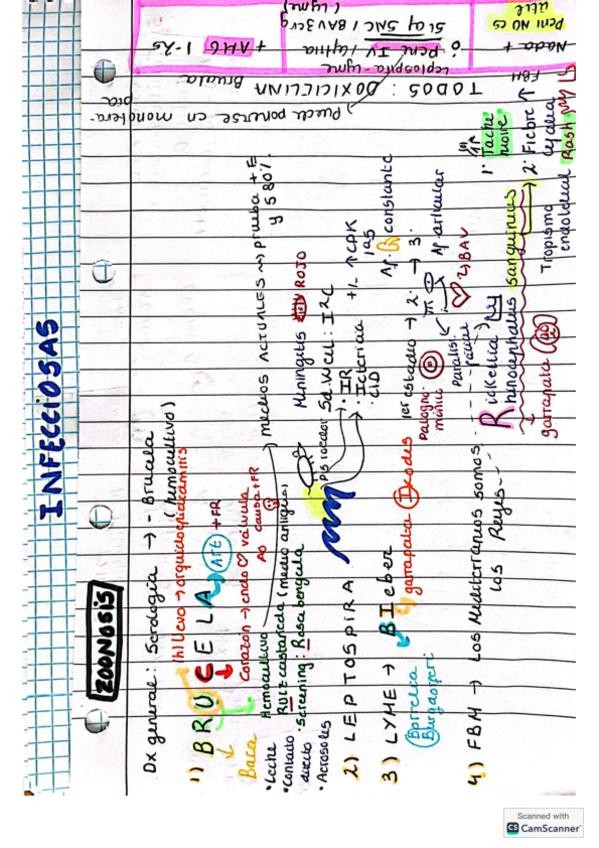 INFECCIOSAS
ZOONOSIS
Dx general: Serología → - Brucela
(hemocultivo)
(h)Uevo → orquidoepididimitis
1) BRUCELA
ATE +FR
Baca
Corazon → endo válvula
Ao causa + FR
• Leche
• Contacto directo
• Aerosoles
Hemocultivo
Ruiz castañeda (medio antiguo)
• Screening: Rosa bengala
) medios ACTUALES → prueba + E y S 80%.
2) LEPTOSPIRA
Ps roedor
Meningitis ROJO
Sd. Weil: I2C
• IR
• Ictericia
• CID
+/- ↑ CPK
3) LYME → BIeber
Borrelia
Burgdorferi
garrapata Ixodes
1er estadio → 2. → 3.
Patogno
mónico
Paralisis
facial
BAV
Af. constante
Af articular
4) FBM → Los Mediterráneos somos
los Reyes
Rickettia
rhinocephalus sanguineus
garrapata
Tropismo
endotelial
1. Tache
noire
2. Fiebre ↑
Rash
TODOS: DOXICICLINA
Puede ponerse en monoterapia
FBM
Leptospira - Lyme
Brucela
Nada +
Peni NO es
útil
ó Peni IV
si af SNC / BAV 3er g
(Lyme)
+ AMG 1-2s
Scanned with
CS CamScanner